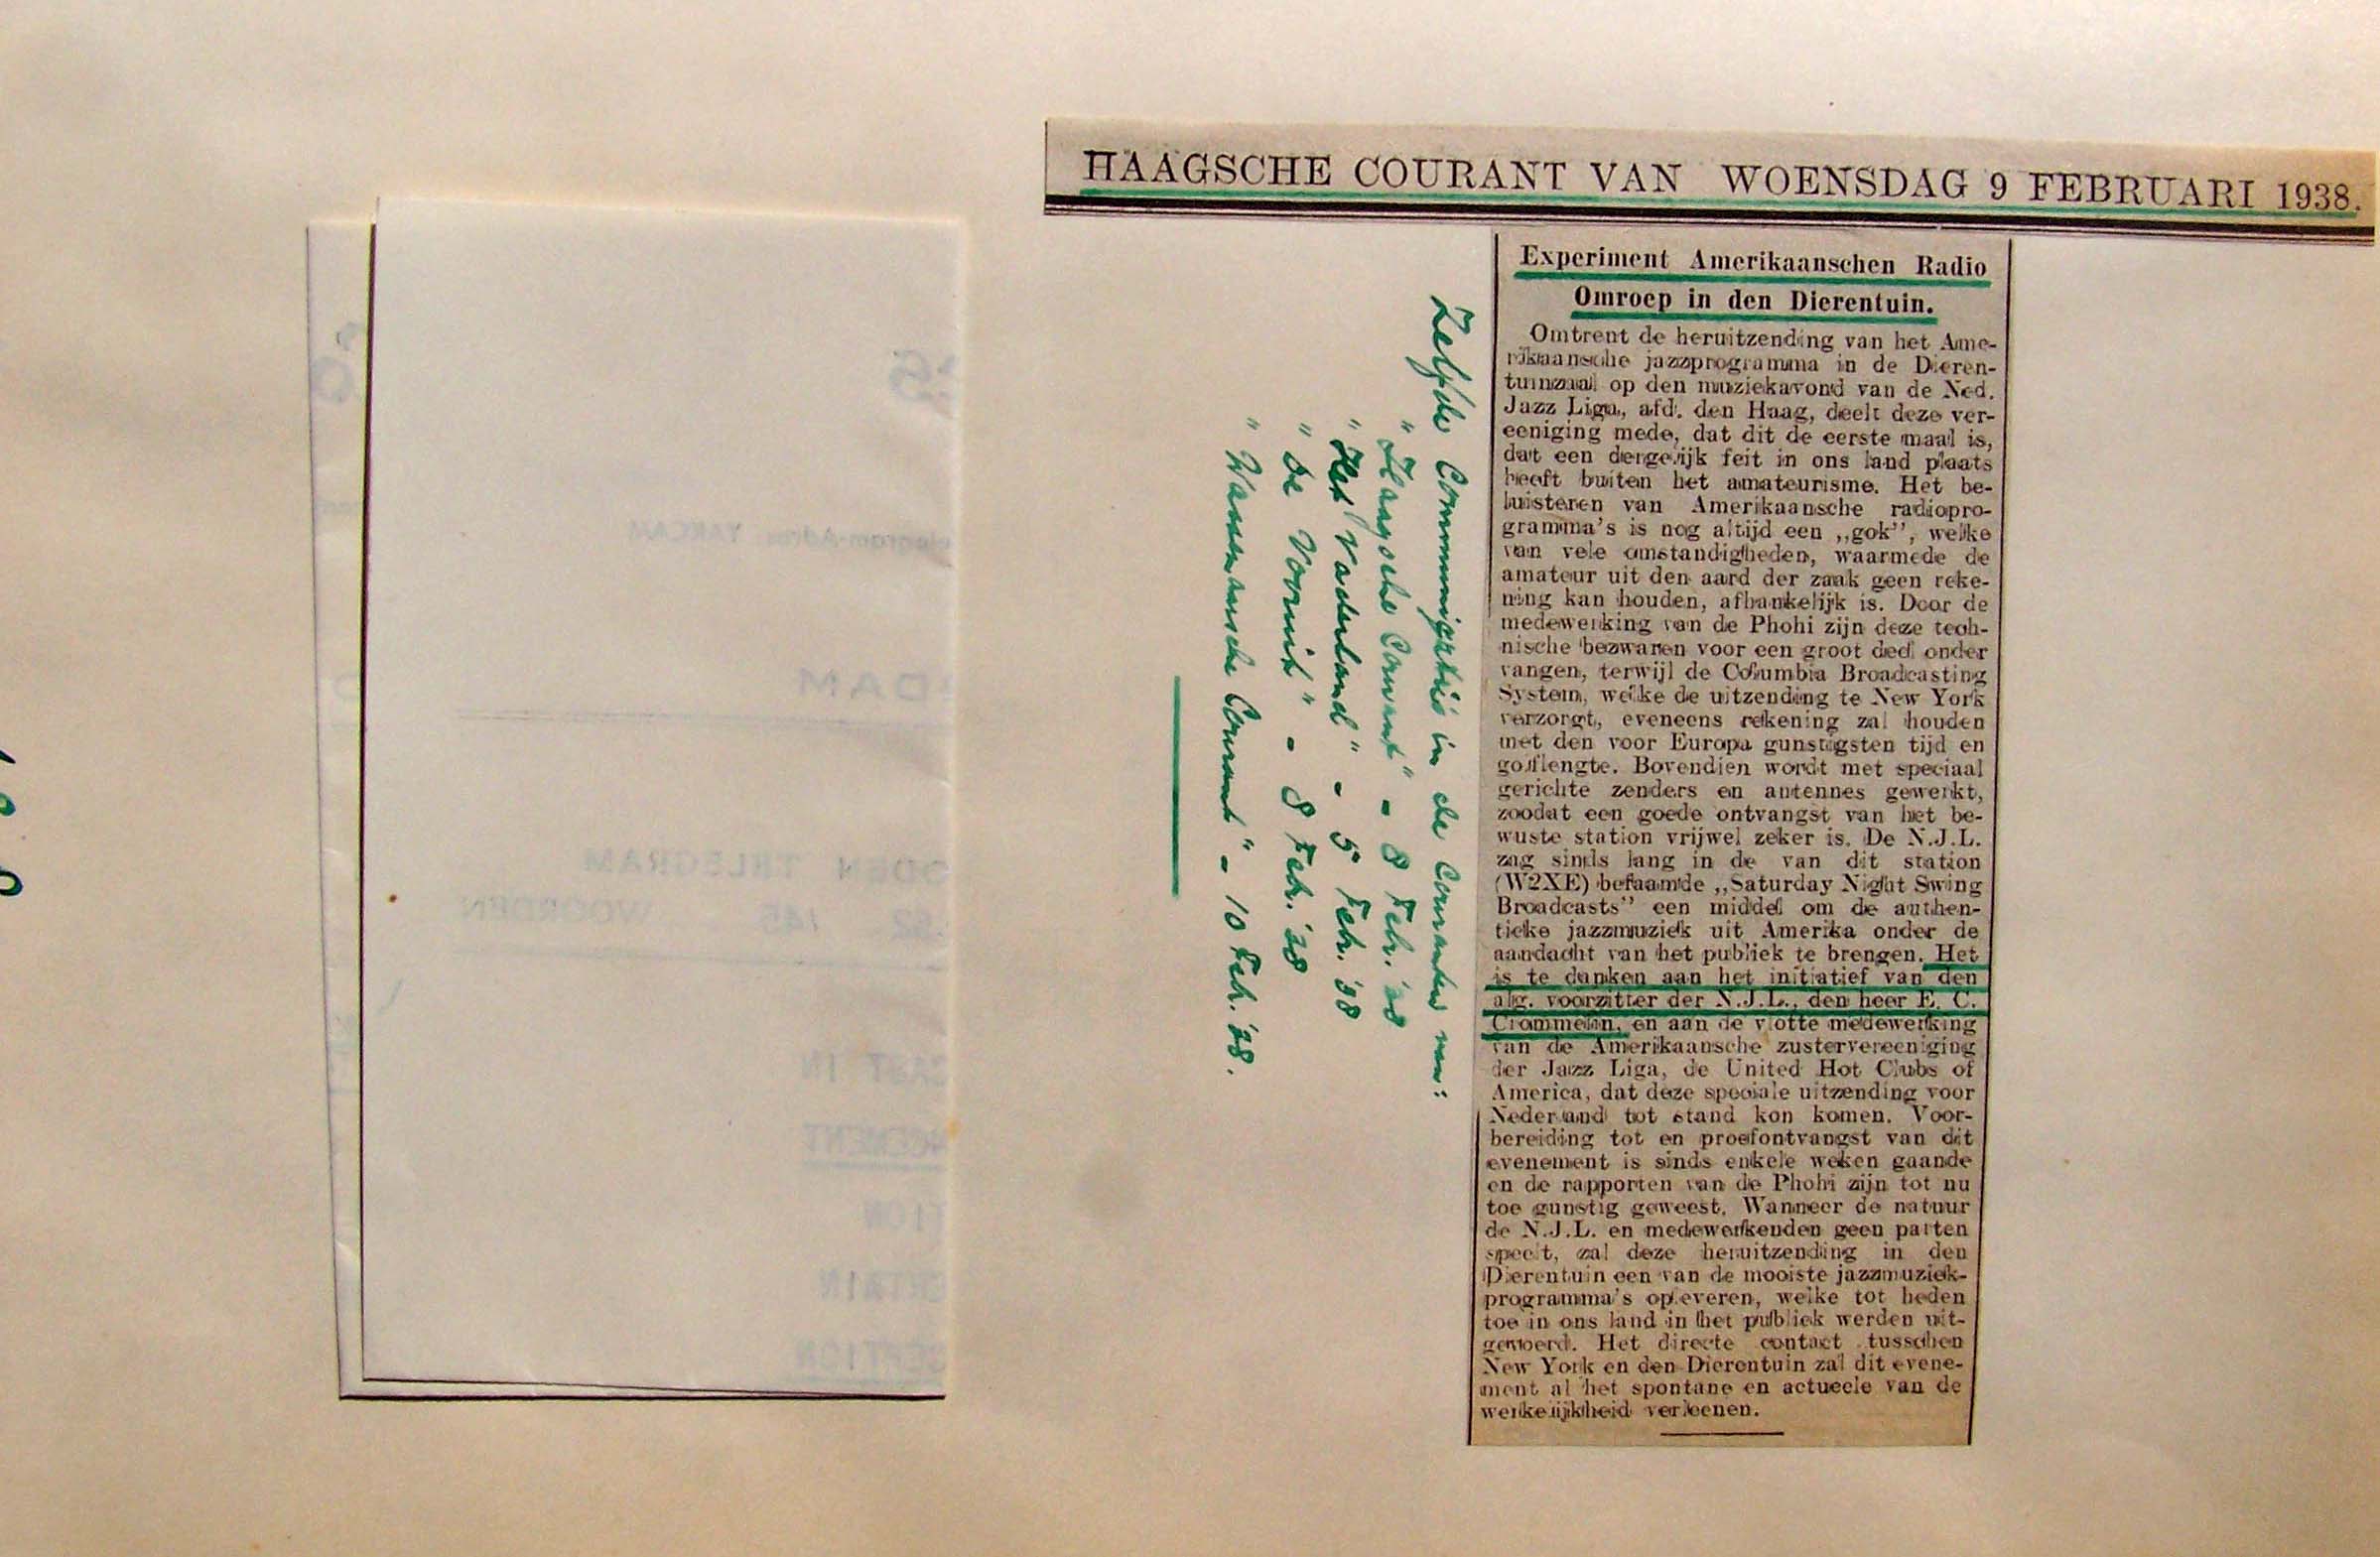 HAAGSCHE COURANT VAN WOENSDAG 9 FEBRUARI 1938.
Experiment Amerikaanschen Radio
Omroep in den Dierentuin.
Omtrent de heruitzending van het Ame-
rikaansche jazzprogramma in de Dieren-
tuinzaal op den muziekavond van de Ned.
Jazz Liga, afd. den Haag, deelt deze ver-
eeniging mede, dat dit de eerste maal is,
dat een dergelijk feit in ons land plaats
heeft buiten het amateurisme. Het be-
luisteren van Amerikaansche radiopro-
gramma's is nog altijd een „gok”, welke
van vele omstandigheden, waarmede de
amateur uit den aard der zaak geen reke-
ning kan houden, afhankelijk is. Door de
medewerking van de Phohi zijn deze tech-
nische bezwaren voor een groot deel onder
vangen, terwijl de Columbia Broadcasting
System, welke de uitzending te New York
verzorgt, eveneens rekening zal houden
met den voor Europa gunstigsten tijd en
golflengte. Bovendien wordt met speciaal
gerichte zenders en antennes gewerkt,
zoodat een goede ontvangst van het be-
wuste station vrijwel zeker is. De N.J.L.
zag sinds lang in de van dit station
(W2XE) befaamde „Saturday Night Swing
Broadcasts” een middel om de authen-
tieke jazzmuziek uit Amerika onder de
aandacht van het publiek te brengen. Het
is te danken aan het initiatief van den
alg. voorzitter der N.J.L., den heer E. C.
Crommelin, en aan de vlotte medewerking
van de Amerikaansche zustervereeniging
der Jazz Liga, de United Hot Clubs of
America, dat deze speciale uitzending voor
Nederland tot stand kon komen. Voor-
bereiding tot en proefontvangst van dit
evenement is sinds enkele weken gaande
en de rapporten van de Phohi zijn tot nu
toe gunstig geweest. Wanneer de natuur
de N.J.L. en medewerkenden geen parten
speelt, zal deze heruitzending in den
Dierentuin een van de mooiste jazzmuziek-
programma's opleveren, welke tot heden
toe in ons land in het publiek werden uit-
gevoerd. Het directe contact tusschen
New York en den Dierentuin zal dit evene-
ment al het spontane en actueele van de
werkelijkheid verleenen.
Zelfde Communiqatie in de Couranten van:
" Haagsche Courant" - 8 Feb. '38
" Het Vaderland" - 5 Feb. '38
" de Voruit" - 8 Feb. '38
" Wassenaarsche Courant" - 10 Feb. '38.
Telegram-Adres: YARCAM
DAM
DEN TELEGRAM
145 WOORDEN